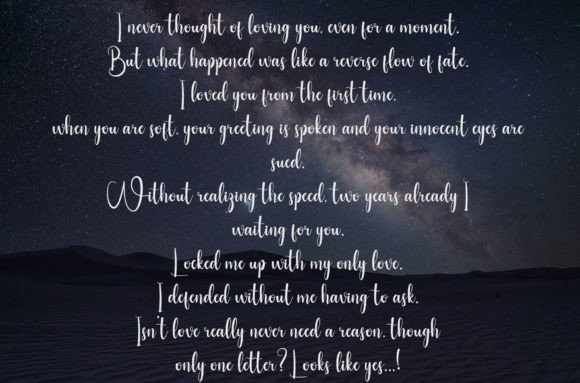 I never thought of loving you, even for a moment.
But what happened was like a reverse flow of fate.
I loved you from the first time.
when you are soft, your greeting is spoken and your innocent eyes are
sued.
Without realizing the speed, two years already I
waiting for you.
Locked me up with my only love.
I defended without me having to ask.
Isn't love really never need a reason, though
only one letter? Looks like yes...!